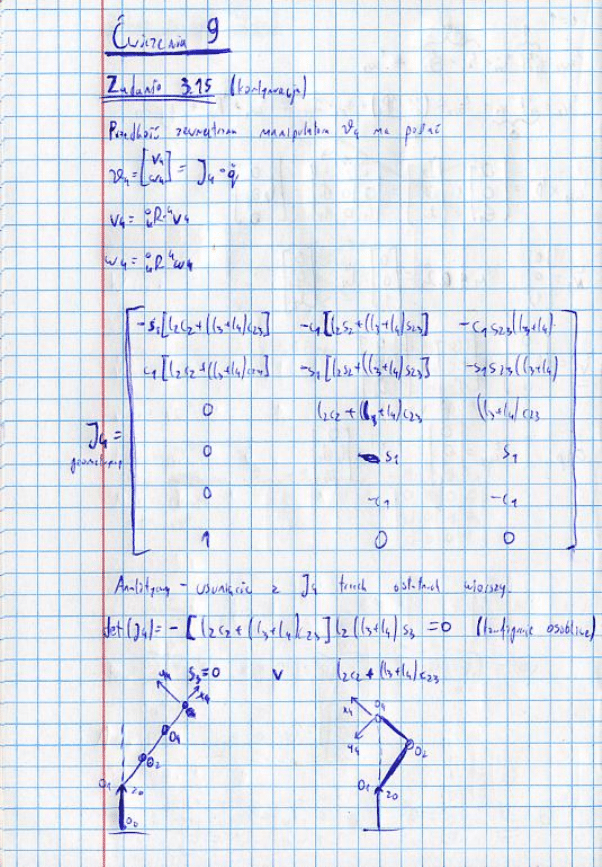 Ćwiczenia 9
Zadanie 3.15 (konfiguracja)
Prędkość zewnętrzna manipulatora 𝒱₄ ma postać
𝒱₄ = [v₄ ω₄] = J₄ · q̇
v₄ = ⁰₄R · ⁴v₄
ω₄ = ⁰₄R ⁴ω₄
-s₁[l₂c₂+(l₃+l₄)c₂₃] -c₁[l₂s₂+(l₃+l₄)s₂₃] -c₁s₂₃(l₃+l₄)
c₁[l₂c₂+(l₃+l₄)c₂₃] -s₁[l₂s₂+(l₃+l₄)s₂₃] -s₁s₂₃(l₃+l₄)
0 l₂c₂+(l₃+l₄)c₂₃ (l₃+l₄)c₂₃
J₄ =
0 s₁ s₁
0 -c₁ -c₁
1 0 0
Analityczny - usunięcie z J₄ trzech ostatnich wierszy.
det(J₄) = -[l₂c₂+(l₃+l₄)c₂₃]l₂(l₃+l₄)s₃ = 0 (konfiguracje osobliwe)
s₃=0 v l₂c₂+(l₃+l₄)c₂₃
y₄ x₄
O₄
O₂
O₁ z₀
O₀
x₄ O₄
y₄
O₂
O₁ z₀